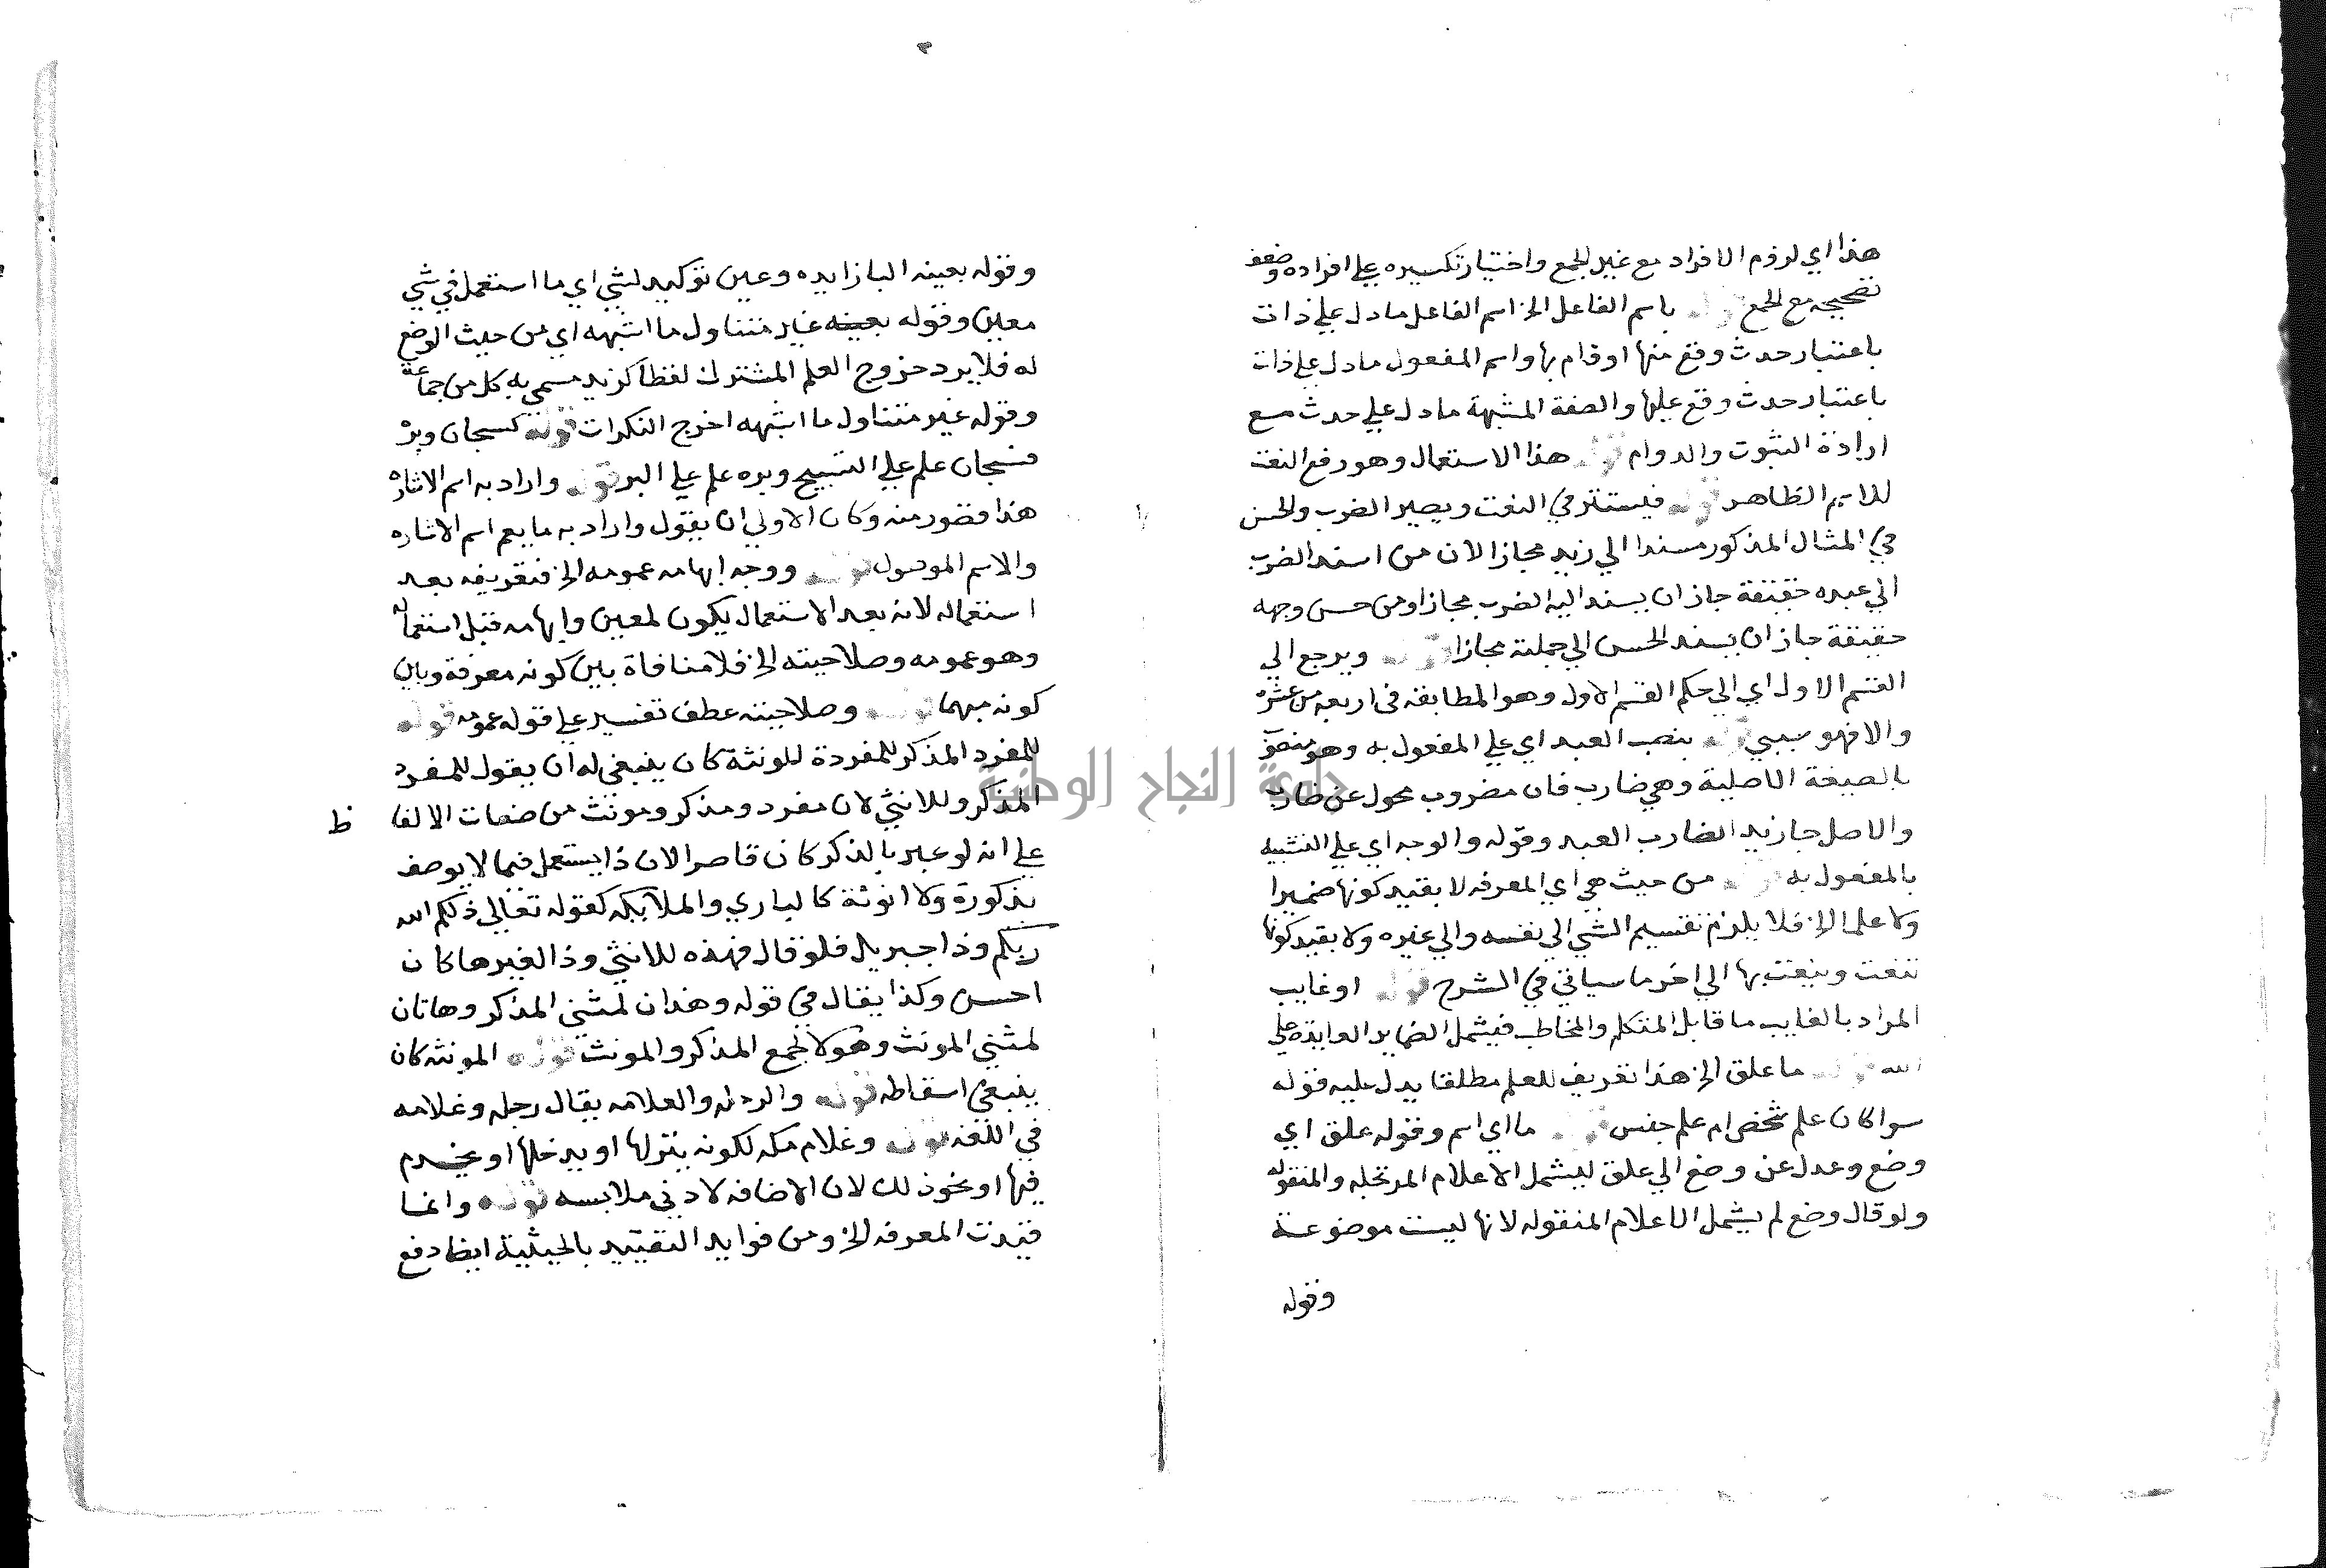 هذا اي لزوم الافراد مع غير الجمع واختيار تكسيره علي افراده وضعف
تصحيحه مع الجمع قوله باسم الفاعل الخ اسم الفاعل ما دل علي ذات
باعتبار حدث وقع منها او قام بها واسم المفعول ما دل علي ذات
باعتبار حدث وقع عليها والصفة المشبهة ما دل علي حدث مع
ارادة الثبوت والدوام قوله هذا الاستعمال وهو رفع النعت
للاسم الظاهر قوله فيستتر في النعت ويصير الضرب والحسن
في المثال المذكور مسندا الي زيد مجازا لان من اسند الضرب
الي عبده حقيقة جاز ان يسند اليه الضرب مجازا ومن حسن وجهه
حقيقة جاز ان يسند الحسن الي جملته مجازا قوله ويرجع الي
القسم الاول اي الي حكم القسم الاول وهو المطابقه في اربعه من عشره
والا فهو سببي قوله بنصب العبد اي علي المفعول به وهو منصوب
بالصيغة الاصلية وهي ضارب فان مضروب محول عن ضارب
والاصل جا زيد الضارب العبد وقوله والوجه اي علي التشبيه
بالمفعول به قوله من حيث هي اي المعرفه لا بقيد كونها ضميرا
ولا علما الخ فلا يلزم تقسيم الشي الي نفسه والي غيره ولا بقيد كونها
تنعت وينعت بها الي اخر ما سياتي في الشرح قوله او غايب
المراد بالغايب ما قابل المتكلم والمخاطب فيشمل الضماير العايده علي
الله قوله ما علق الخ هذا تعريف للعلم مطلقا يدل عليه قوله
سوا كان علم شخص ام علم جنس قوله ما اي اسم وقوله علق اي
وضع وعدل عن وضع الي علق ليشمل الاعلام المرتجله والمنقوله
ولو قال وضع لم يشمل الاعلام المنقوله لانها ليست موضوعة
وقوله
وقوله بعينه البا زايده وعين توكيد لشي اي ما استعمل في شي
معين وقوله بعينه غير متناول ما اشبهه اي من حيث الوضع
له فلا يرد خروج العلم المشترك لفظا كزيد مسمي به كل من جماعة
وقوله غير متناول ما اشبهه اخرج النكرات قوله كسبحان وبره
فسبحان علم علي التسبيح وبره علم علي البر قوله واراد به اسم الاشاره
هذا قصور منه وكان الاولي ان يقول واراد به ما يعم اسم الاشاره
والاسم الموصول قوله ووجه ابهامه عمومه الخ فتعريفه بعد
استعماله لانه بعد الاستعمال يكون لمعين وابهامه قبل استعماله
وهو عمومه وصلاحيته الخ فلا منافاة بين كونه معرفة وبين
كونه مبهما قوله وصلاحيته عطف تفسير علي قوله عمومه قوله
للمفرد المذكر للمفردة للونثة كان ينبغي له ان يقول للمفرد
المذكر وللانثي لان مفرد ومذكر ومونث من صفات الالفاظ
علي انه لو عبر بالذكر كان قاصرا لان ذا يستعمل فيما لا يوصف
بذكورة ولا انوثة كالباري والملايكه كقوله تعالي ذلكم الله
ربكم وذا جبريل فلو قال فهذه للانثي وذا لغيرها كان
احسن وكذا يقال في قوله وهذان لمثني المذكر وهاتان
لمثني المونث وهولا لجمع المذكر والمونث قوله المونثه كان
ينبغي اسقاطه قوله والرجله والغلامه يقال رجله وغلامه
في اللغه قوله وغلام مكه لكونه ينزلها او يدخلها او يخدم
فيها او نحو ذلك لان الاضافه لادني ملابسه قوله وانما
قيدت المعرفه الخ ومن فوايد التقييد بالحيثية ايضا دفع
جامعة النجاح الوطنية